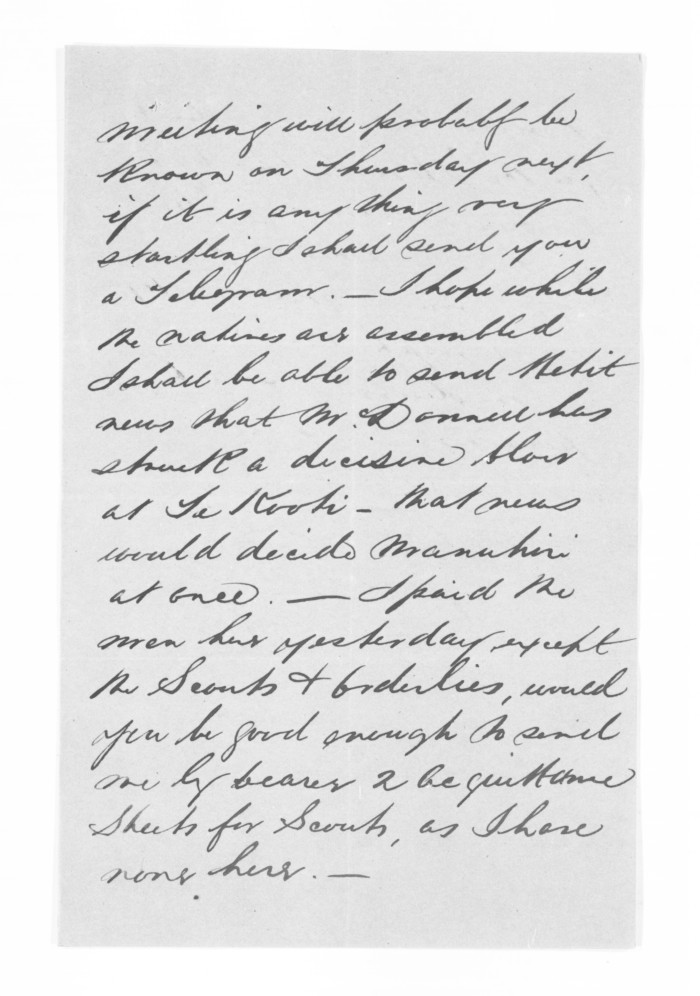 meeting will probably be
known on Thursday next,
if it is any thing very
startling I shall send you
a Telegram. — I hope while
the natives are assembled
I shall be able to send the
news that McDonnell has
struck a decisive blow
at Te Kooti - that news
would decide Manuhiri
at once. — I paid the
men here yesterday, except
the Scouts & Orderlies, would
you be good enough to send
me by bearer 2 acquittance
Sheets for Scouts, as I have
none here. —